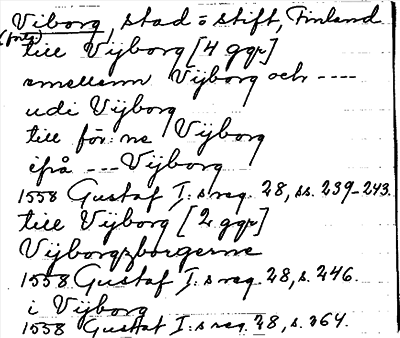 Viborg, stad o stift, Finland
(forts)
till Vijborg [4 ggr]
emellenn Vijborg och ----
udi Vijborg
till för:ne Vijborg
ifrå --- Vijborg
1558 Gustaf I:s reg. 28, ss. 239-243.
till Vijborg [2 ggr]
Vijborgzborgerne
1558 Gustaf I:s reg. 28, s. 246.
i Vijborg
1558 Gustaf I:s reg. 28, s. 264.